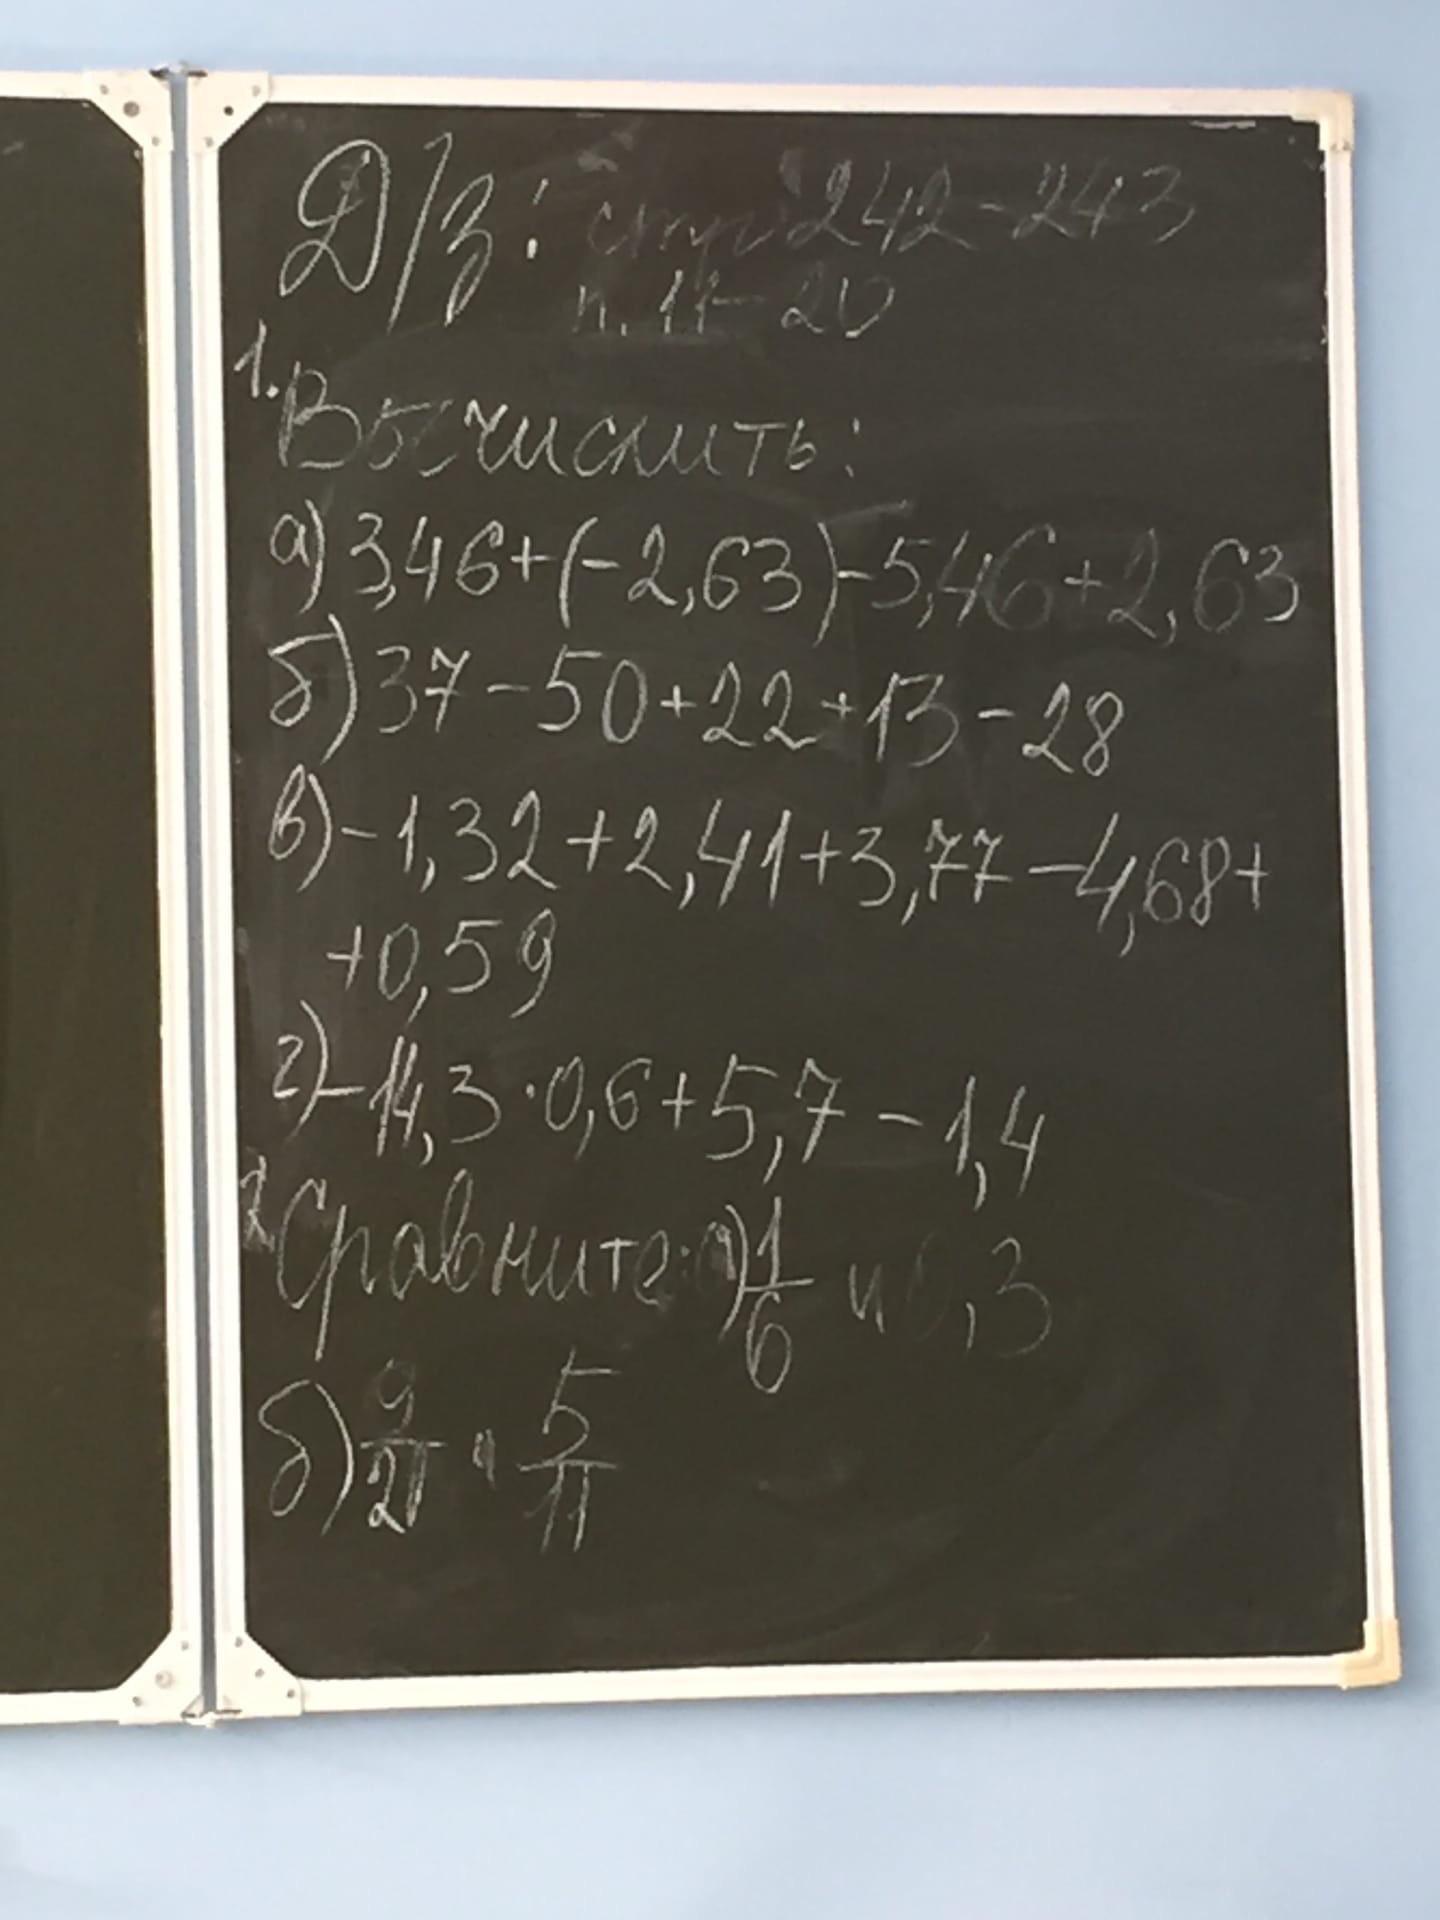 Д/з: стр. 242-243
п. 11-20
1. Вычислить:
а) 3,46+(-2,63)-5,46+2,63
б) 37-50+22+13-28
в) -1,32+2,41+3,77-4,68+
+0,59
г) -14,3·0,6+5,7-1,4
2. Сравните: а) 1/6 и 0,3
б) 9/21 и 5/11